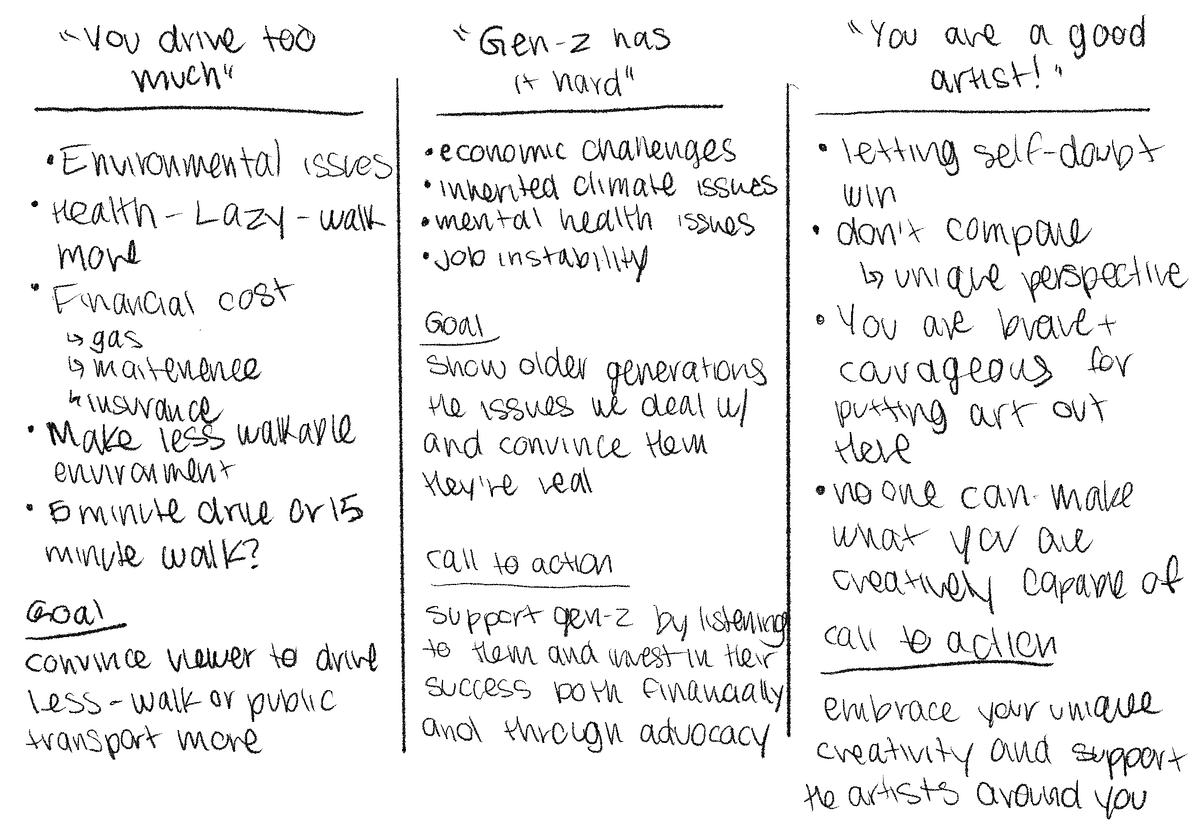 "You drive too
much"
• Environmental issues
• Health - Lazy - walk
more
• Financial cost
↳ gas
↳ maitenence
↳ insurance
• Make less walkable
environment
• 5 minute drive or 15
minute walk?
Goal
convince viewer to drive
less - walk or public
transport more
"Gen-z has
it hard"
• economic challenges
• inherited climate issues
• mental health issues
• job instability
Goal
show older generations
the issues we deal w/
and convince them
they're real
call to action
support gen-z by listening
to them and invest in their
success both financially
and through advocacy
"You are a good
artist!"
• letting self-doubt
win
• don't compare
↳ unique perspective
• You are brave +
courageous for
putting art out
there
• no one can make
what you are
creatively capable of
call to action
embrace your unique
creativity and support
the artists around you